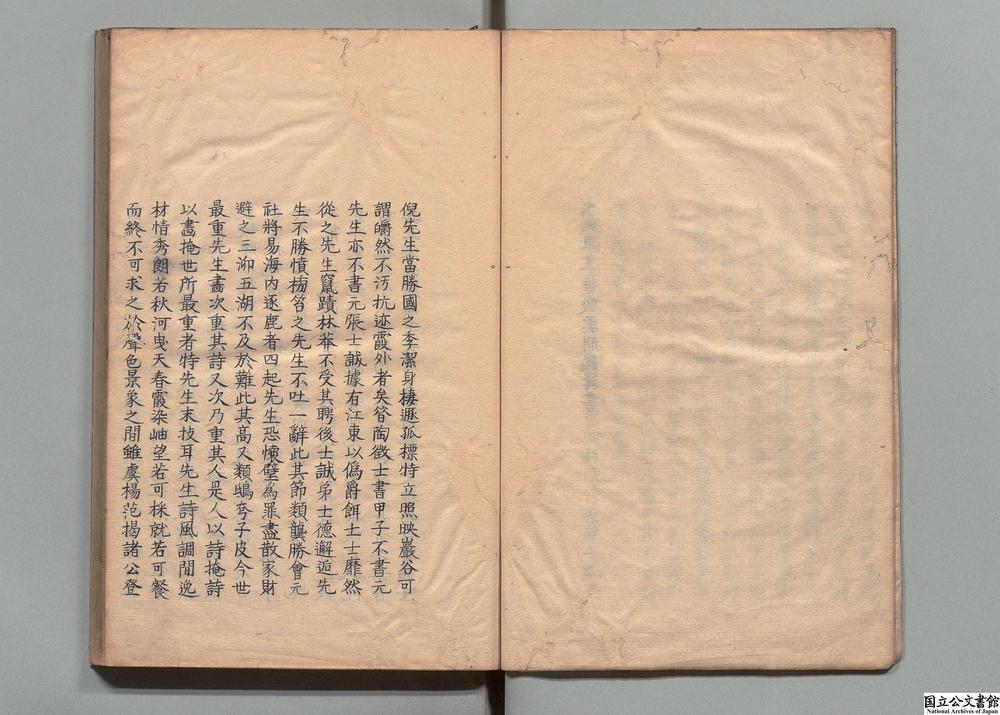 倪先生當勝國之季潔身棲遯孤標特立照映巖谷可
謂皭然不汚抗迹霞外者矣昝陶徵士書甲子不書元
先生亦不書元張士誠據有江東以僞爵餌士士靡然
從之先生竄蹟林莽不受其聘後士誠弟士德邂逅先
生不勝憤梏笞之先生不吐一辭此其節類龔勝會元
社將易海內逐鹿者四起先生恐懷璧為罪盡散家財
避之三泖五湖不及於難此其高又類鴟夸子皮今世
最重先生畵次重其詩又次乃重其人是人以詩掩詩
以畵掩世所最重者特先生末技耳先生詩風調閒逸
材情秀朗若秋河曳天春霞染岫望若可採就若可餐
而終不可求之於聲色景象之間雖虞楊范揭諸公登
国立公文書館
National Archives of Japan